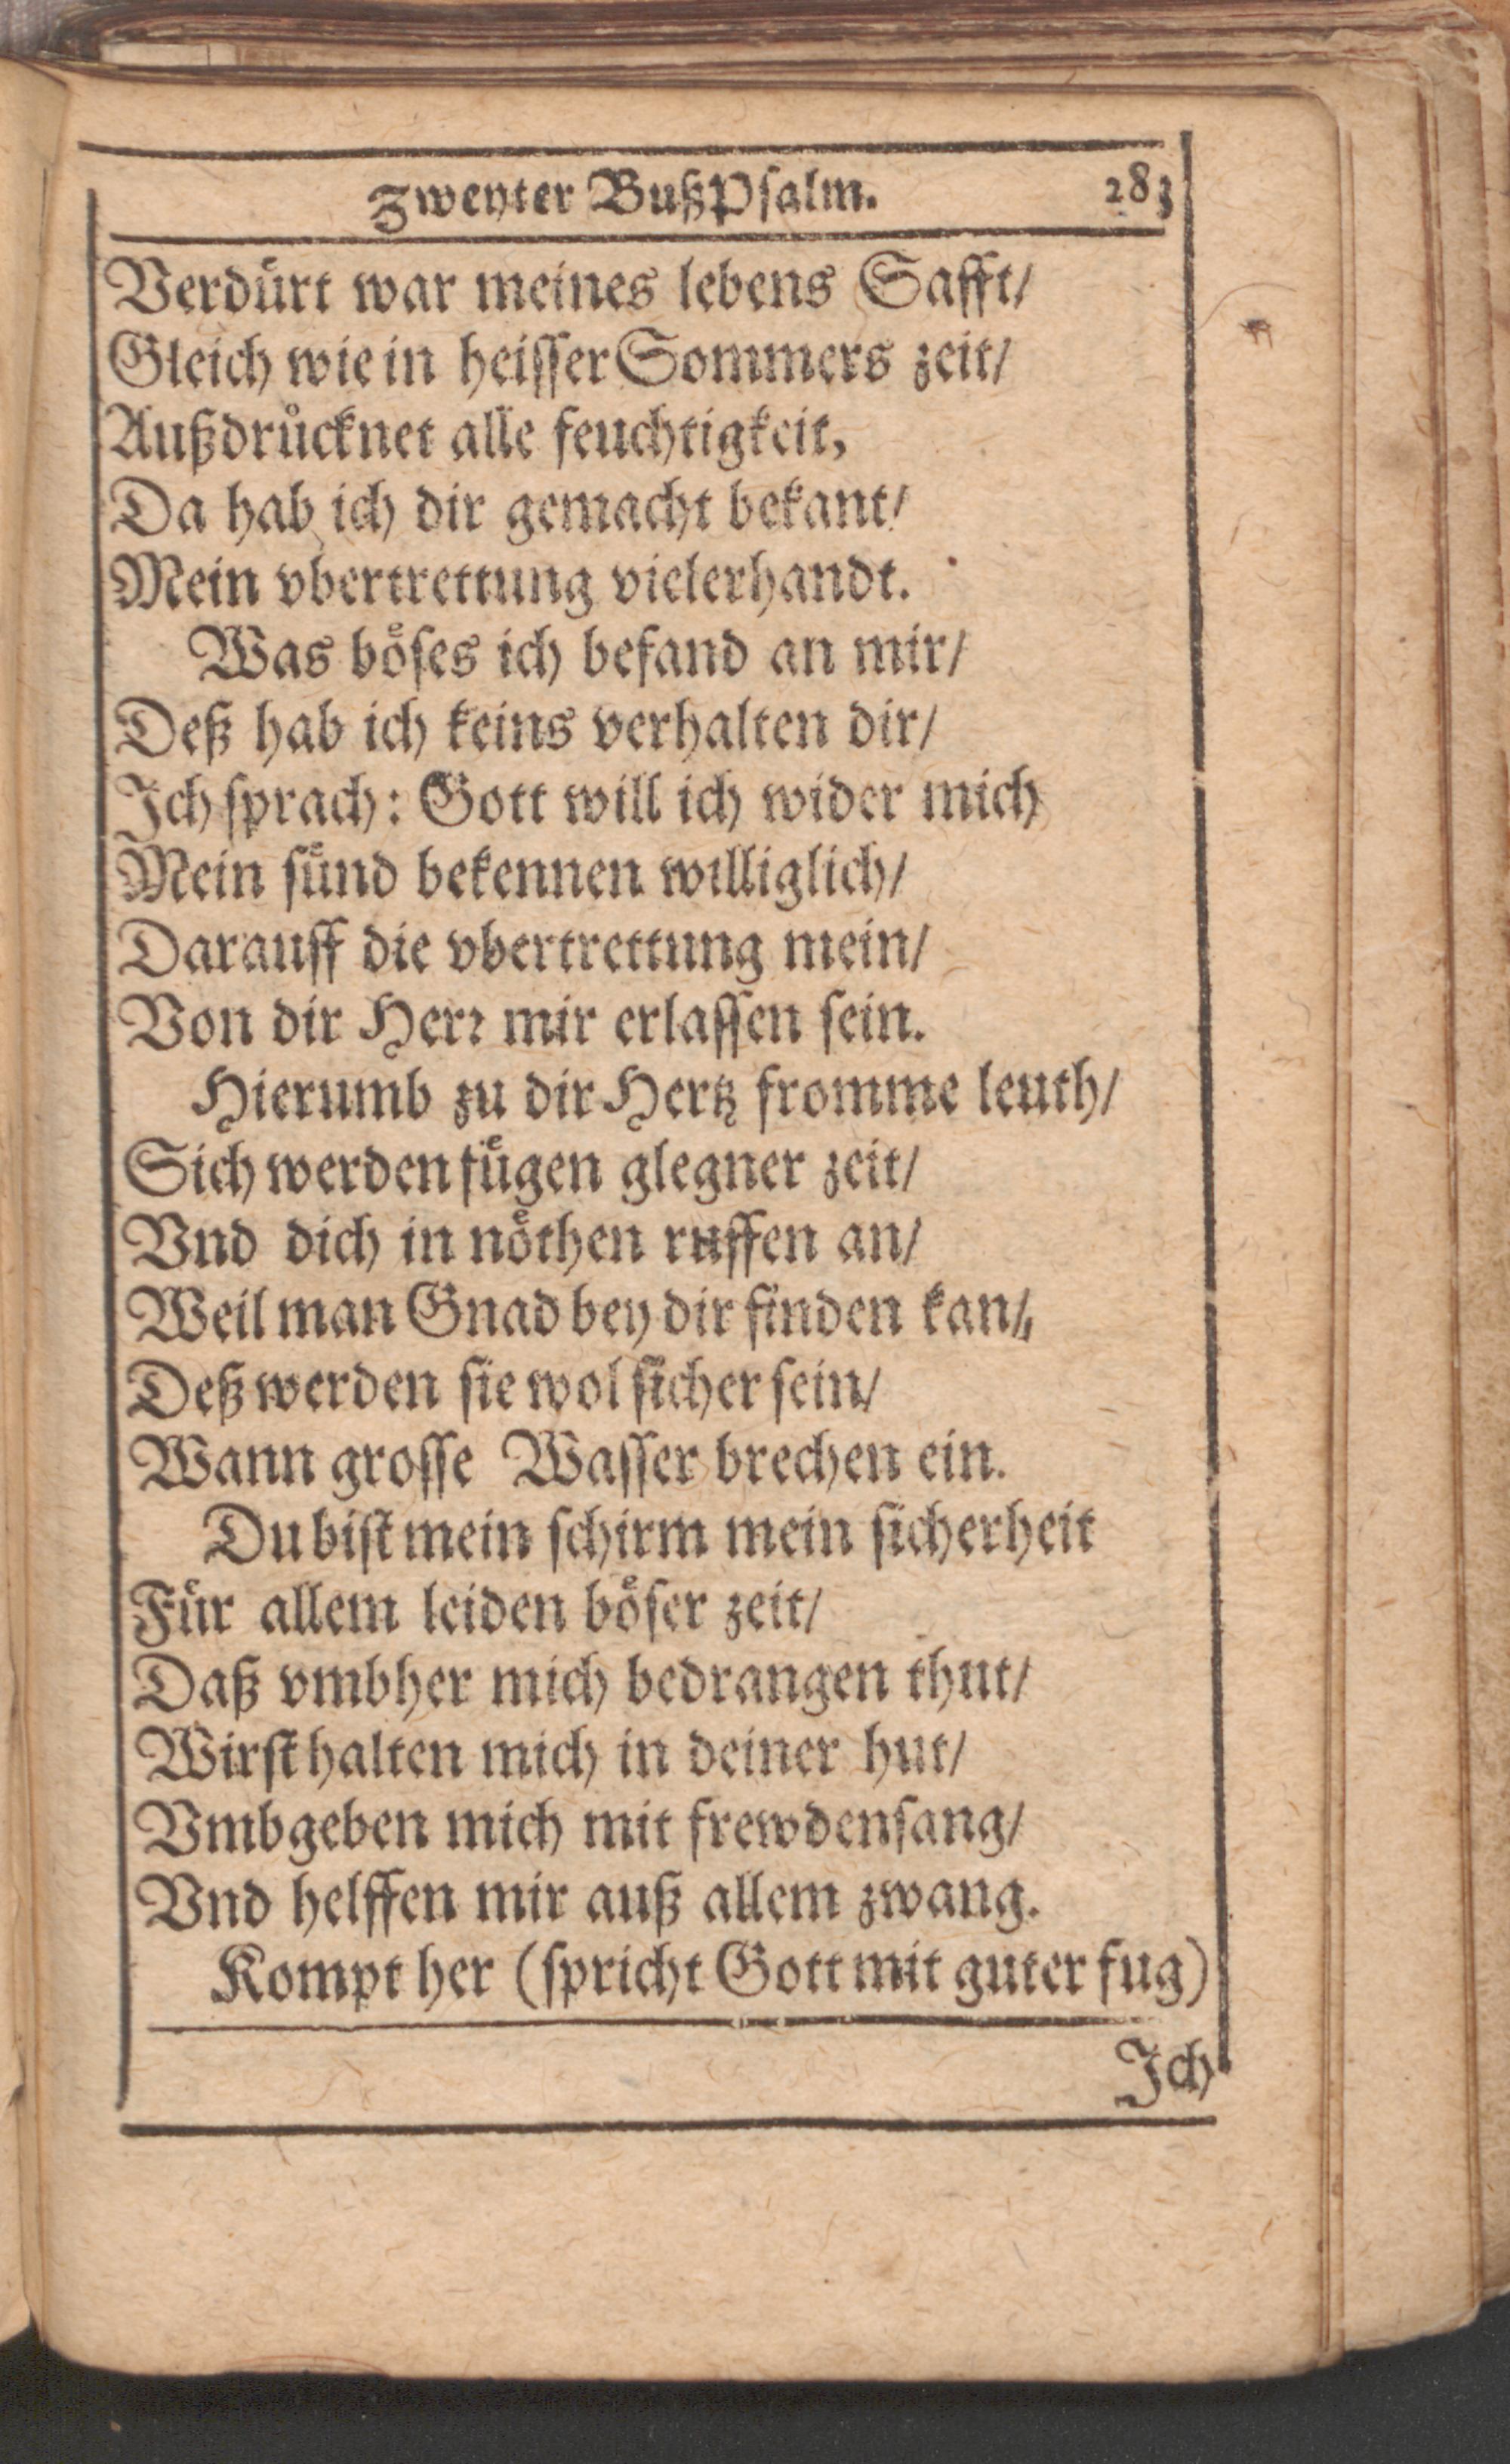 Zweyter BußPsalm. 283
Verduͤrt war meines lebens Safft/
Gleich wie in heisser Sommers zeit/
Außdruͤcknet alle feuchtigkeit,
Da hab ich dir gemacht bekant/
Mein vbertrettung vielerhandt.
Was boͤses ich befand an mir/
Deß hab ich keins verhalten dir/
Ich sprach: Gott will ich wider mich
Mein suͤnd bekennen williglich/
Darauff die vbertrettung mein/
Von dir Herꝛ mir erlassen sein.
Hierumb zu dir Hertz fromme leuth/
Sich werden fuͤgen glegner zeit/
Vnd dich in noͤthen ruffen an/
Weil man Gnad bey dir finden kan/
Deß werden sie wol sicher sein/
Wann grosse Wasser brechen ein.
Du bist mein schirm mein sicherheit
Fuͤr allem leiden boͤser zeit/
Daß vmbher mich bedrangen thut/
Wirst halten mich in deiner hut/
Vmbgeben mich mit frewdensang/
Vnd helffen mir auß allem zwang.
Kompt her (spricht Gott mit guter fug)
Ich